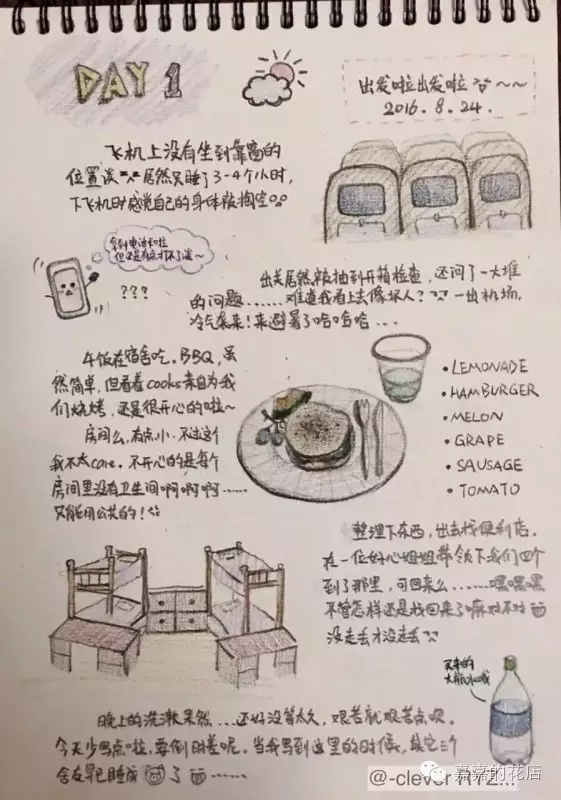 DAY 1
出发啦出发啦~~
2016.8.24.
飞机上没有坐到靠窗的
位置诶 居然只睡了3-4个小时,
下飞机时感觉自己的身体被掏空
拿到电话卡啦
但还是有点打不了诶~
???
出关居然被抽到开箱检查,还问了一大堆
的问题......难道我看上去像坏人? 一出机场,
冷气袭来!来避暑了哈哈哈...
午饭在宿舍吃.BBQ,虽
然简单,但看着cooks亲自为我
们烧烤,还是很开心的啦~
房间么,有点小.不过这个
我不太care.不开心的是每个
房间里没有卫生间啊啊啊......
又能用公共的!
·LEMONADE
·HAMBURGER
·MELON
·GRAPE
·SAUSAGE
·TOMATO
整理下东西,出去找便利店.
在一位好心姐姐带领下我们四个
到了那里,可回来么.......嘿嘿嘿
不管怎样还是找回来了嘛对不对
没走丢才没走丢
买来的
大瓶水哦
晚上的洗漱果然...还好没等太久,艰苦就艰苦点呗.
今天少写点啦,要倒时差呢.当我写到这里的时候,其它三个
舍友早已睡成 了
@-clever
嘉嘉的花店